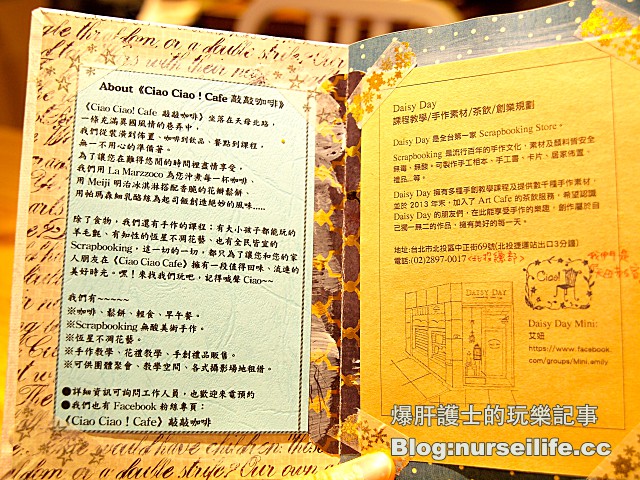 About《Ciao Ciao！Cafe 敲敲咖啡》
《Ciao Ciao! Cafe 敲敲咖啡》坐落在天母北路，
一條充滿異國風情的巷弄中，
我們從裝潢到佈置、咖啡到飲品、餐點到課程，
無一不用心的準備著。
為了讓您在難得悠閒的時間裡盡情享受，
我們用 La Marzzoco 為您沖煮每一杯咖啡、
用 Meiji 明治冰淇淋搭配香脆的花瓣鬆餅、
用帕瑪森細乳酪絲為起司飯創造絕妙的風味.....
除了食物，我們還有手作的課程：有大小孩子都能玩的
羊毛氈、有知性的恆星不凋花藝、也有全民皆宜的
Scrapbooking，這一切的一切，都只為了讓您和您的家
人朋友在《Ciao Ciao Cafe》擁有一段值得回味、流連的
美好時光。嘿！來找我們玩吧，記得喊聲 Ciao~~
我們有~~~~~
※咖啡、鬆餅、輕食、早午餐。
※Scrapbooking 無酸美術手作。
※恆星不凋花藝。
※手作教學、花禮教學、手創禮品販售。
※可供團體聚會、教學空間、各式攝影場地租借。
●詳細資訊可詢問工作人員，也歡迎來電預約
●我們也有 Facebook 粉絲專頁：
《Ciao Ciao！Cafe》敲敲咖啡
Daisy Day
課程教學/手作素材/茶飲/創業規劃
Daisy Day 是全台第一家 Scrapbooking Store，
Scrapbooking 是流行百年的手作文化，素材及顏料皆安全
無毒、無酸，可製作手工相本、手工書、卡片、居家佈置、
禮品...等。
Daisy Day 擁有多種手創教學課程及提供數千種手作素材，
並於 2013 年末，加入了 Art Cafe 的茶飲服務，希望認識
Daisy Day 的朋友們，在此能享受手作的樂趣，創作屬於自
己獨一無二的作品，擁有美好的每一天。
地址:台北市北投區中正街69號(北投捷運站出口3分鐘)
電話:(02)2897-0017
DAISY DAY
Ciao!
Daisy Day Mini:
艾妞
https://www.facebook.
com/groups/Mini.emily
爆肝護士的玩樂記事
Blog:nurseilife.cc